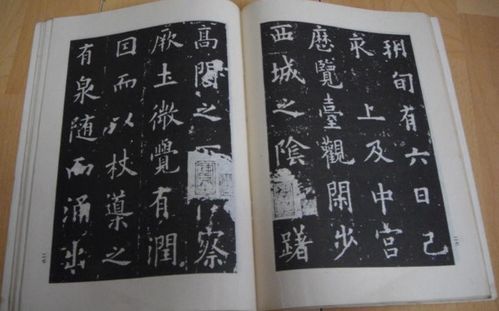 朔旬有六日己
亥上及中宫
歷覽臺觀閑步
西城之陰躇
高閣之下察
厥土微覺有潤
因而以杖導之
有泉随而涌出